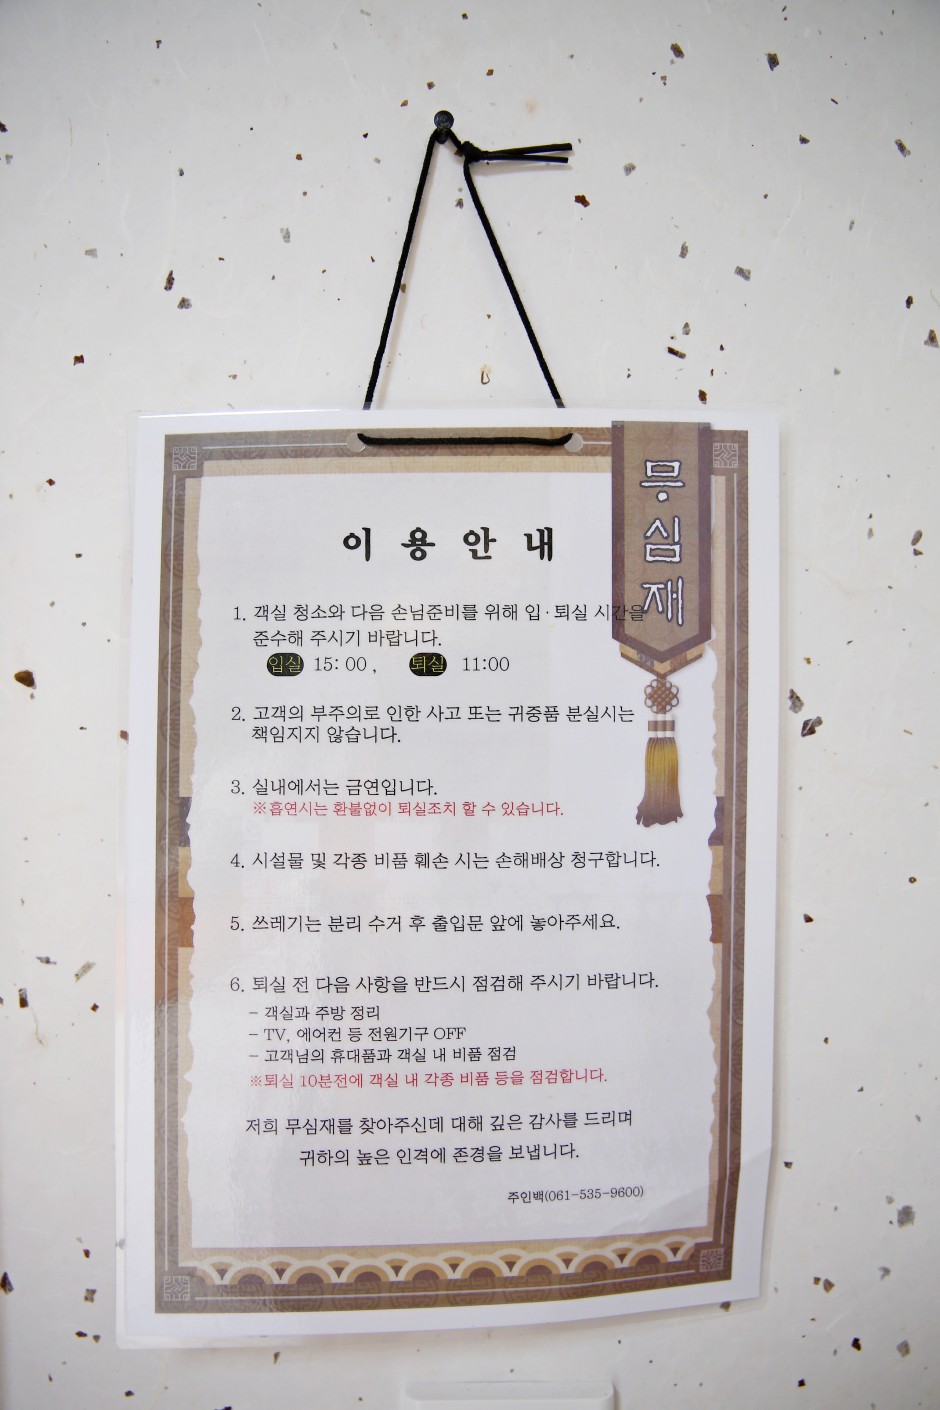 무심재
이용안내
1. 객실 청소와 다음 손님준비를 위해 입·퇴실 시간을
준수해 주시기 바랍니다.
입실 15:00, 퇴실 11:00
2. 고객의 부주의로 인한 사고 또는 귀중품 분실시는
책임지지 않습니다.
3. 실내에서는 금연입니다.
※흡연시는 환불없이 퇴실조치 할 수 있습니다.
4. 시설물 및 각종 비품 훼손 시는 손해배상 청구합니다.
5. 쓰레기는 분리 수거 후 출입문 앞에 놓아주세요.
6. 퇴실 전 다음 사항을 반드시 점검해 주시기 바랍니다.
- 객실과 주방 정리
- TV, 에어컨 등 전원기구 OFF
- 고객님의 휴대품과 객실 내 비품 점검
※퇴실 10분전에 객실 내 각종 비품 등을 점검합니다.
저희 무심재를 찾아주신데 대해 깊은 감사를 드리며
귀하의 높은 인격에 존경을 보냅니다.
주인백(061-535-9600)